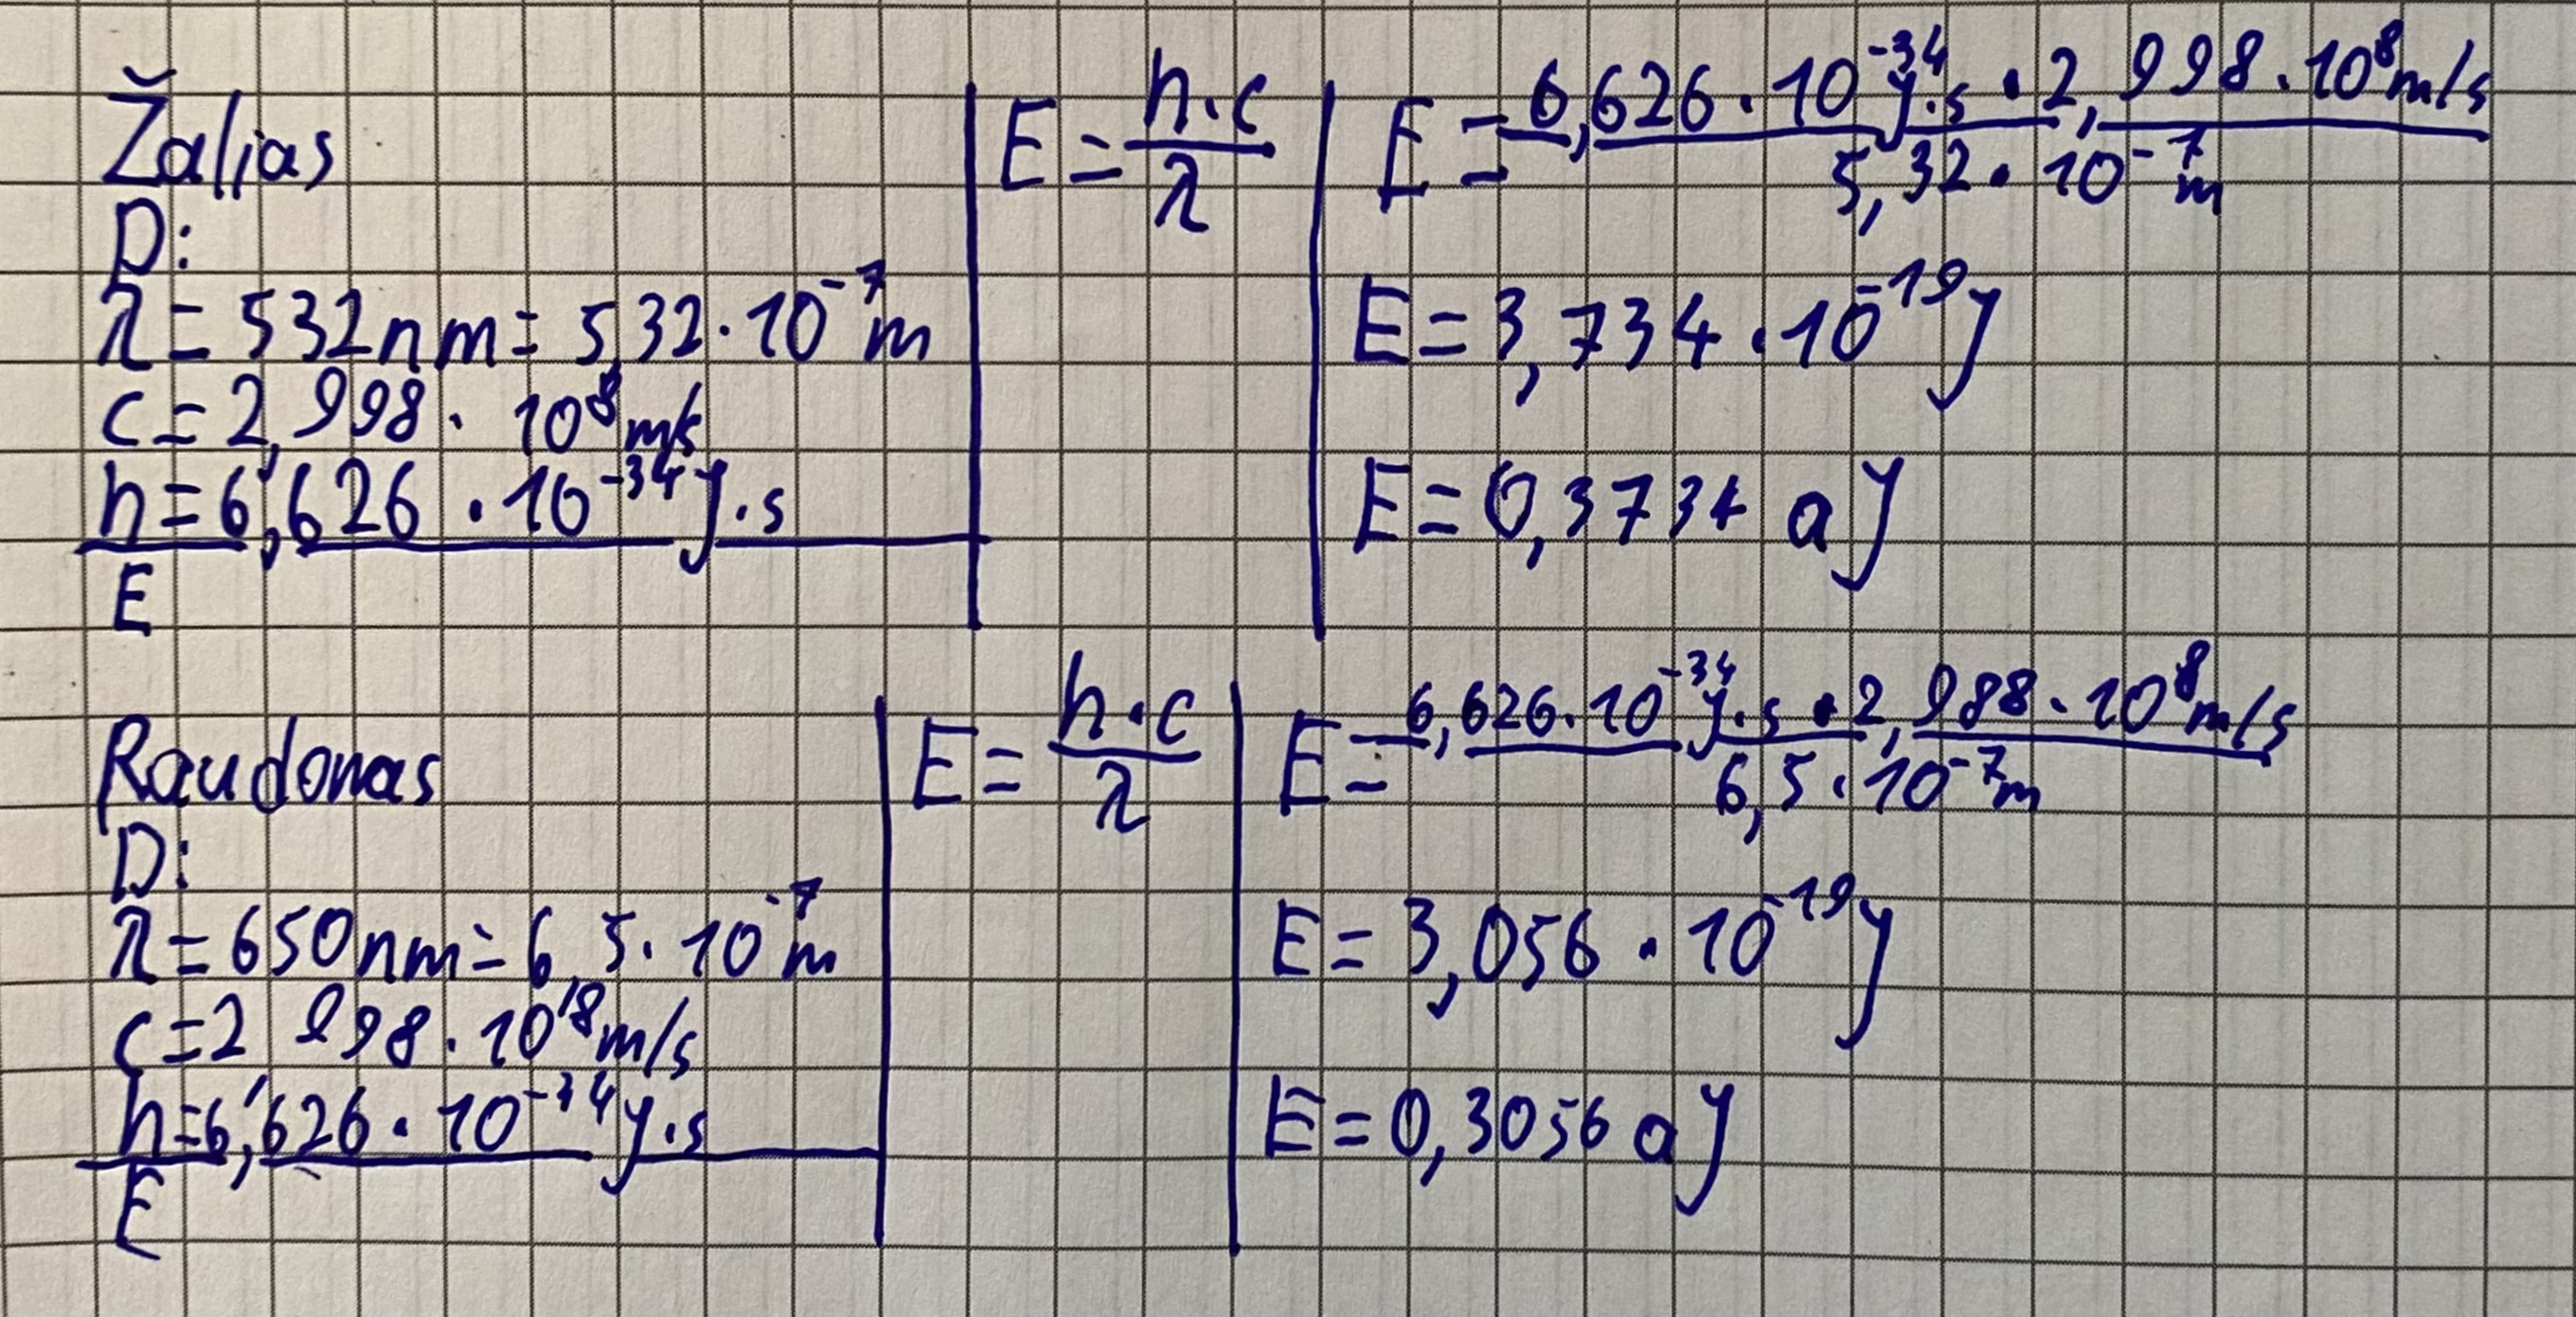 Žalias
D:
λ = 532nm = 5,32 · 10⁻⁷ m
c = 2,998 · 10⁸ m/s
h = 6,626 · 10⁻³⁴ J · s
E
E = h · c / λ
E = 6,626 · 10⁻³⁴ J · s · 2,998 · 10⁸ m/s / 5,32 · 10⁻⁷ m
E = 3,734 · 10⁻¹⁹ J
E = 0,3734 aJ
Raudonas
D:
λ = 650nm = 6,5 · 10⁻⁷ m
c = 2,998 · 10⁸ m/s
h = 6,626 · 10⁻³⁴ J · s
E
E = h · c / λ
E = 6,626 · 10⁻³⁴ J · s · 2,988 · 10⁸ m/s / 6,5 · 10⁻⁷ m
E = 3,056 · 10⁻¹⁹ J
E = 0,3056 aJ